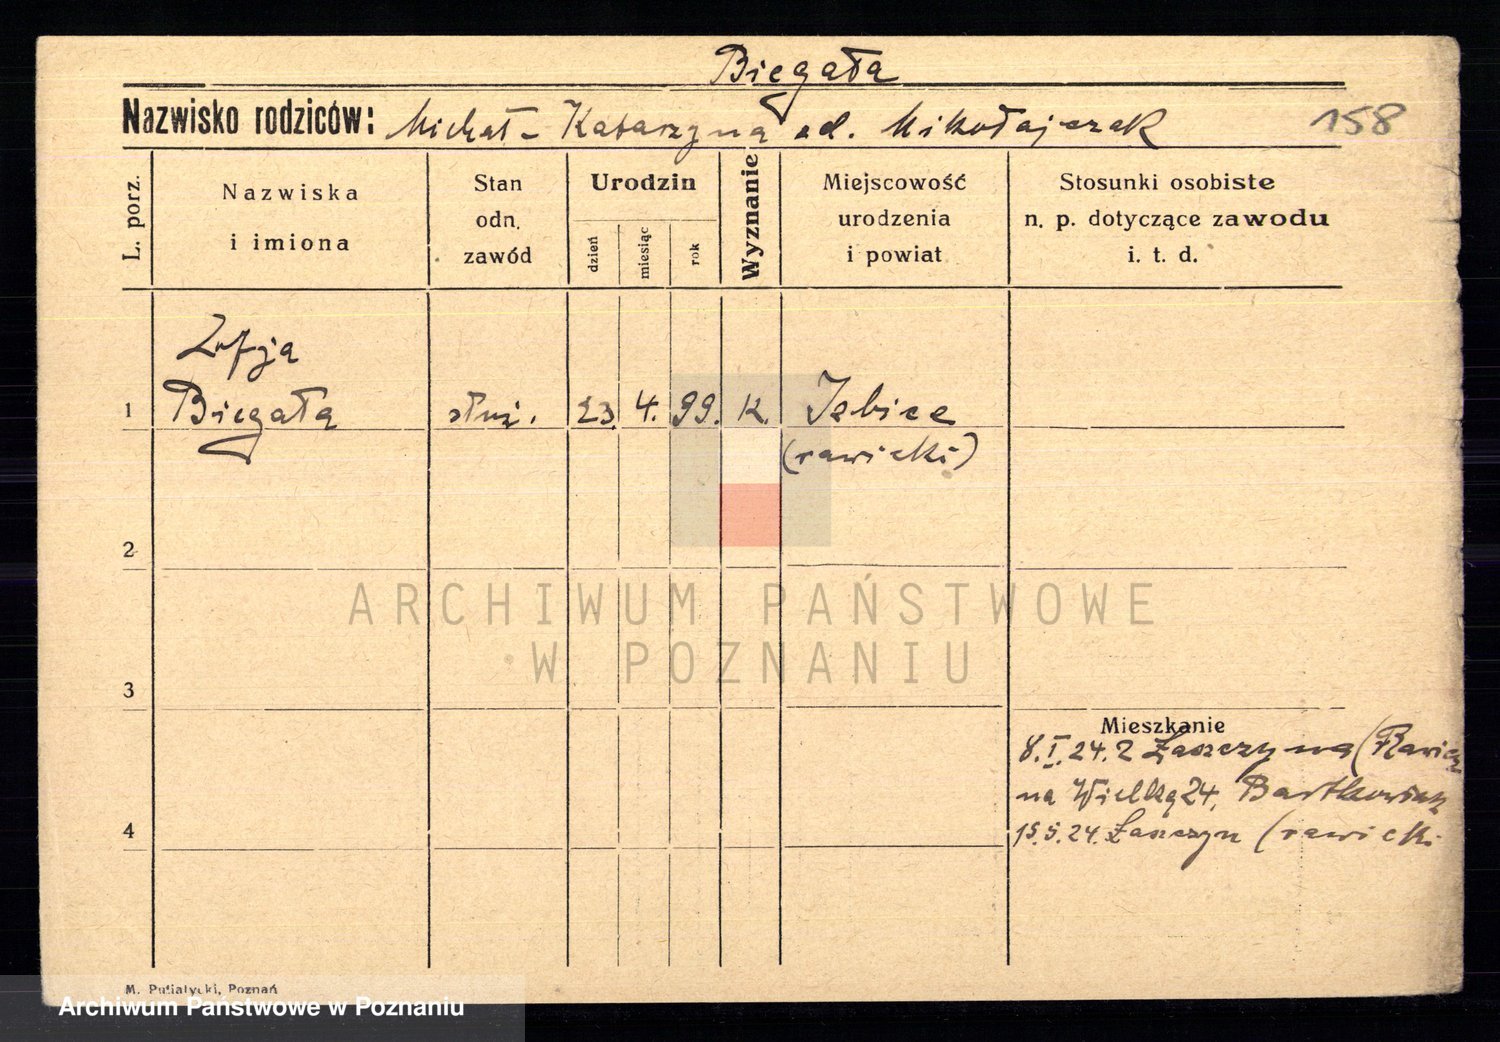 Biegała
Nazwisko rodziców: Michał - Katarzyna ad. Mikołajczak 158
L. porz.
Nazwiska
i imiona
Stan
odn.
zawód
Urodzin
dzień
miesiąc
rok
Wyznanie
Miejscowość
urodzenia
i powiat
Stosunki osobiste
n. p. dotyczące zawodu
i. t. d.
Zofja
1 Biegała służ. 23. 4. 99. K.
(rawicki)
2
3
4
Mieszkanie
8.I.24. z (Rawicz
na Wielką 24, Bartkowiak
15.5.24. Łaszczyn (rawicki
ARCHIWUM PAŃSTWOWE
W POZNANIU
M. Putiatycki, Poznań
Archiwum Państwowe w Poznaniu